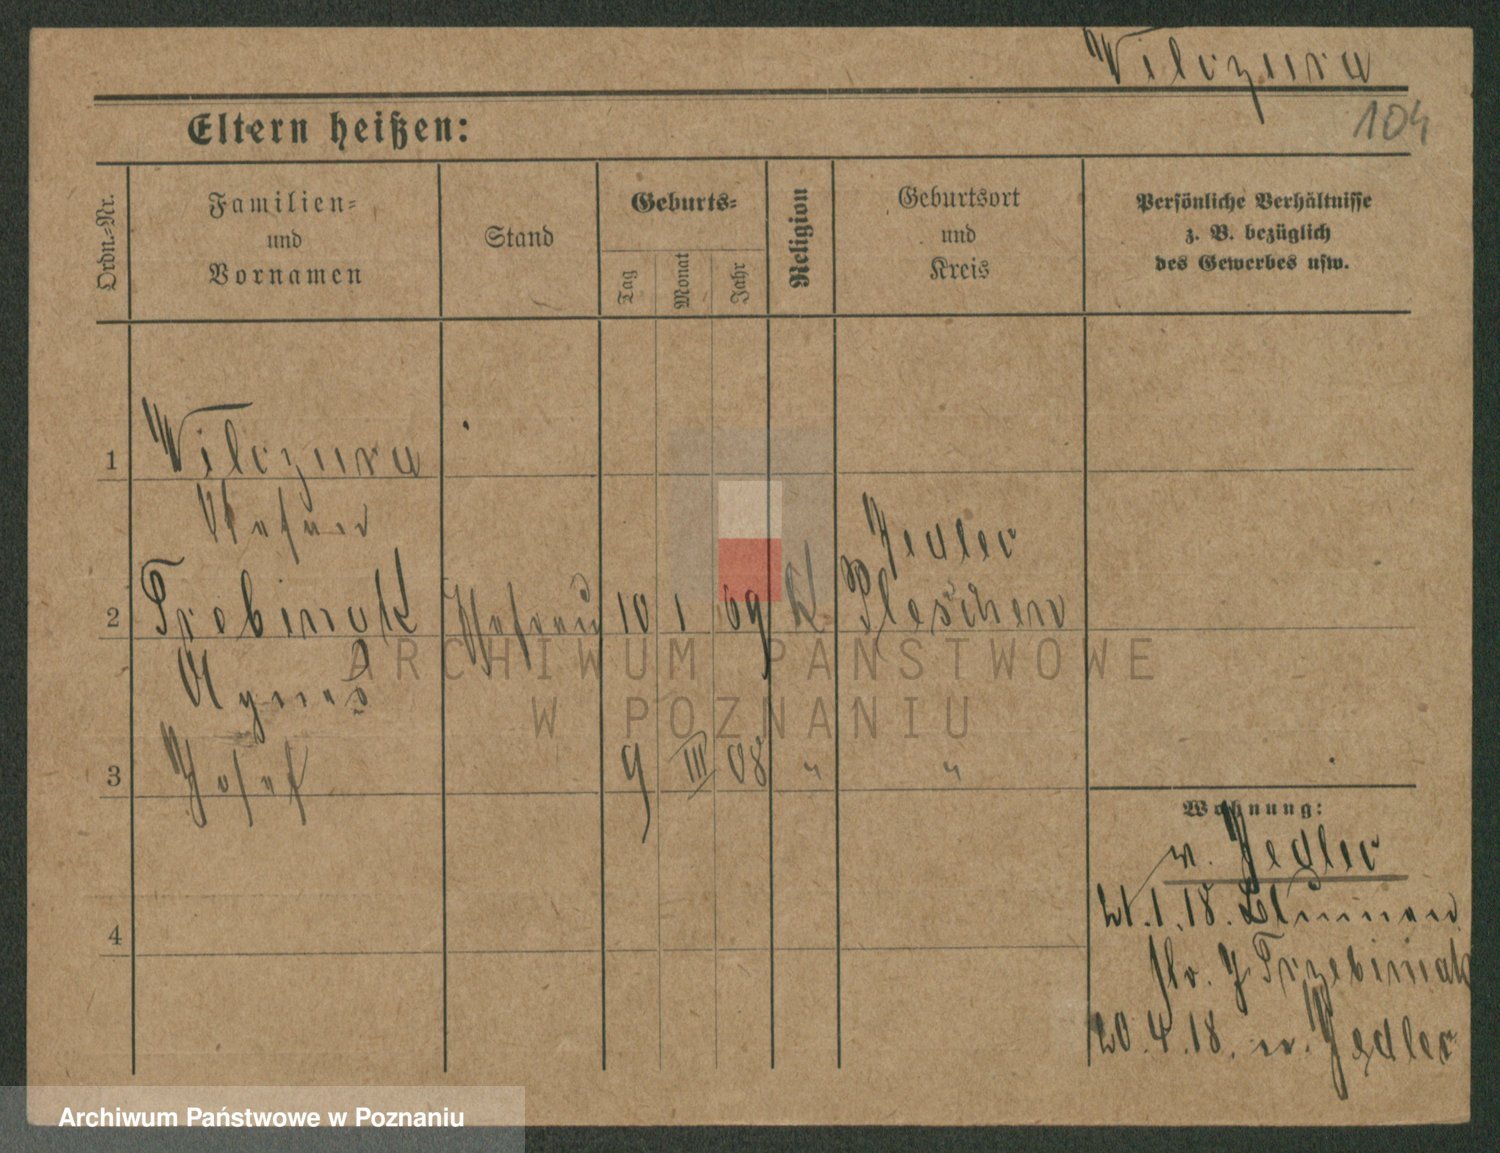 Wilczura
104
Eltern heißen:
Ordn.-Nr.
Familien-
und
Vornamen
Stand
Geburts-
Tag
Monat
Jahr
Religion
Geburtsort
und
Kreis
Persönliche Verhältnisse
z. B. bezüglich
des Gewerbes usw.
1 Wilczura
Jedlec
2 Trebiniak 10 1 69 K Pleschen
ARCHIWUM PAŃSTWOWE
Agnes
W POZNANIU
3 Josef 9 III 08 " "
Wohnung:
n. Jedlec
21.1.18.
J Trzebiniak
4
20.4.18. n. Jedlec
Archiwum Państwowe w Poznaniu